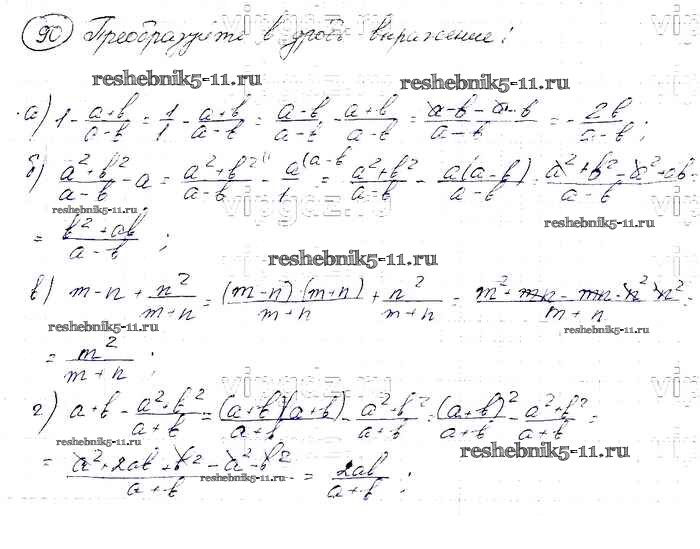 90 Преобразуйте в дробь выражение:
reshebnik5-11.ru reshebnik5-11.ru
а) 1 - (a+b)/(a-b) = 1/1 - (a+b)/(a-b) = (a-b)/(a-b) - (a+b)/(a-b) = (a-b-a-b)/(a-b) = - 2b/(a-b);
б) (a²+b²)/(a-b) - a = (a²+b²)/(a-b) - a/1 (a-b = (a²+b²)/(a-b) - a(a-b)/(a-b) = (a²+b²-a²+ab)/(a-b) =
reshebnik5-11.ru reshebnik5-11.ru
= (b²+ab)/(a-b);
reshebnik5-11.ru
в) m-n + n²/(m+n) = (m-n)(m+n)/(m+n) + n²/(m+n) = (m²+mn-mn-n²+n²)/(m+n) =
reshebnik5-11.ru reshebnik5-11.ru
= m²/(m+n);
г) a+b - (a²+b²)/(a+b) = (a+b)(a+b)/(a+b) - (a²+b²)/(a+b) = (a+b)²/(a+b) - (a²+b²)/(a+b) =
reshebnik5-11.ru reshebnik5-11.ru
= (a²+2ab+b²-a²-b²)/(a+b) = 2ab/(a+b);
reshebnik5-11.ru reshebnik5-11.ru